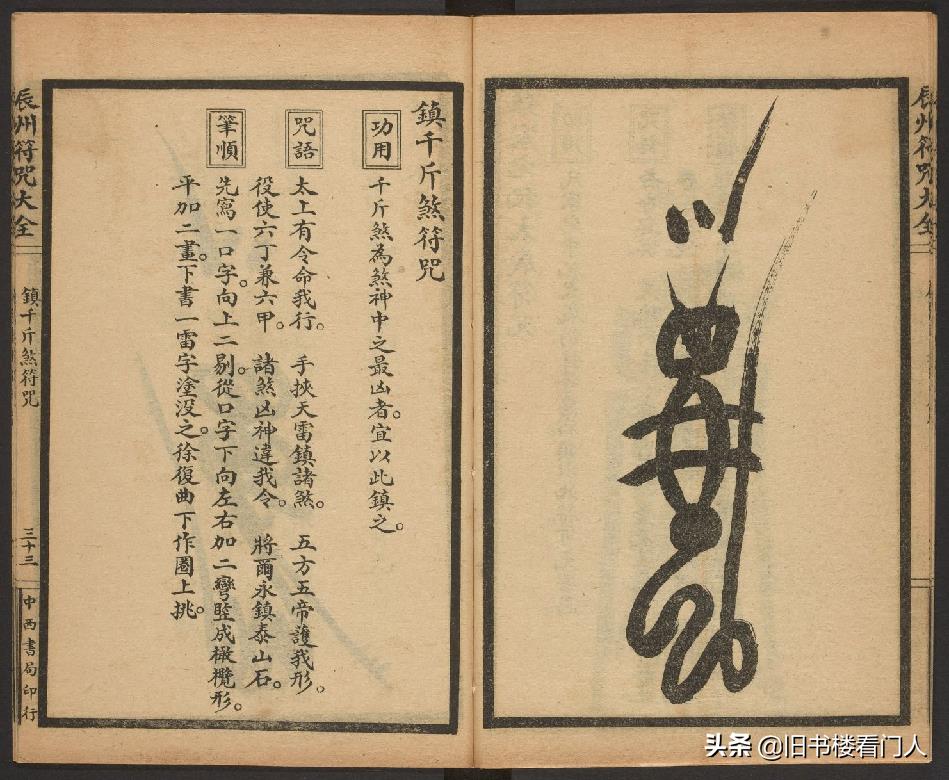 辰州符咒大全
鎮千斤煞符咒
功用
千斤煞為煞神中之最凶者。宜以此鎮之。
咒語
太上有令命我行。 手挾天雷鎮諸煞。 五方五帝護我形。
役使六丁兼六甲。 諸煞凶神違我令。 將爾永鎮泰山石。
筆順
先寫一口字。向上二剔。從口字下向左右加二彎豎成橄欖形。
平加二畫。下書一雷字塗沒之。徐復曲下作圈上挑。
辰州符咒大全
鎮千斤煞符咒
三十三
中西書局印行
头条 @旧书楼看门人